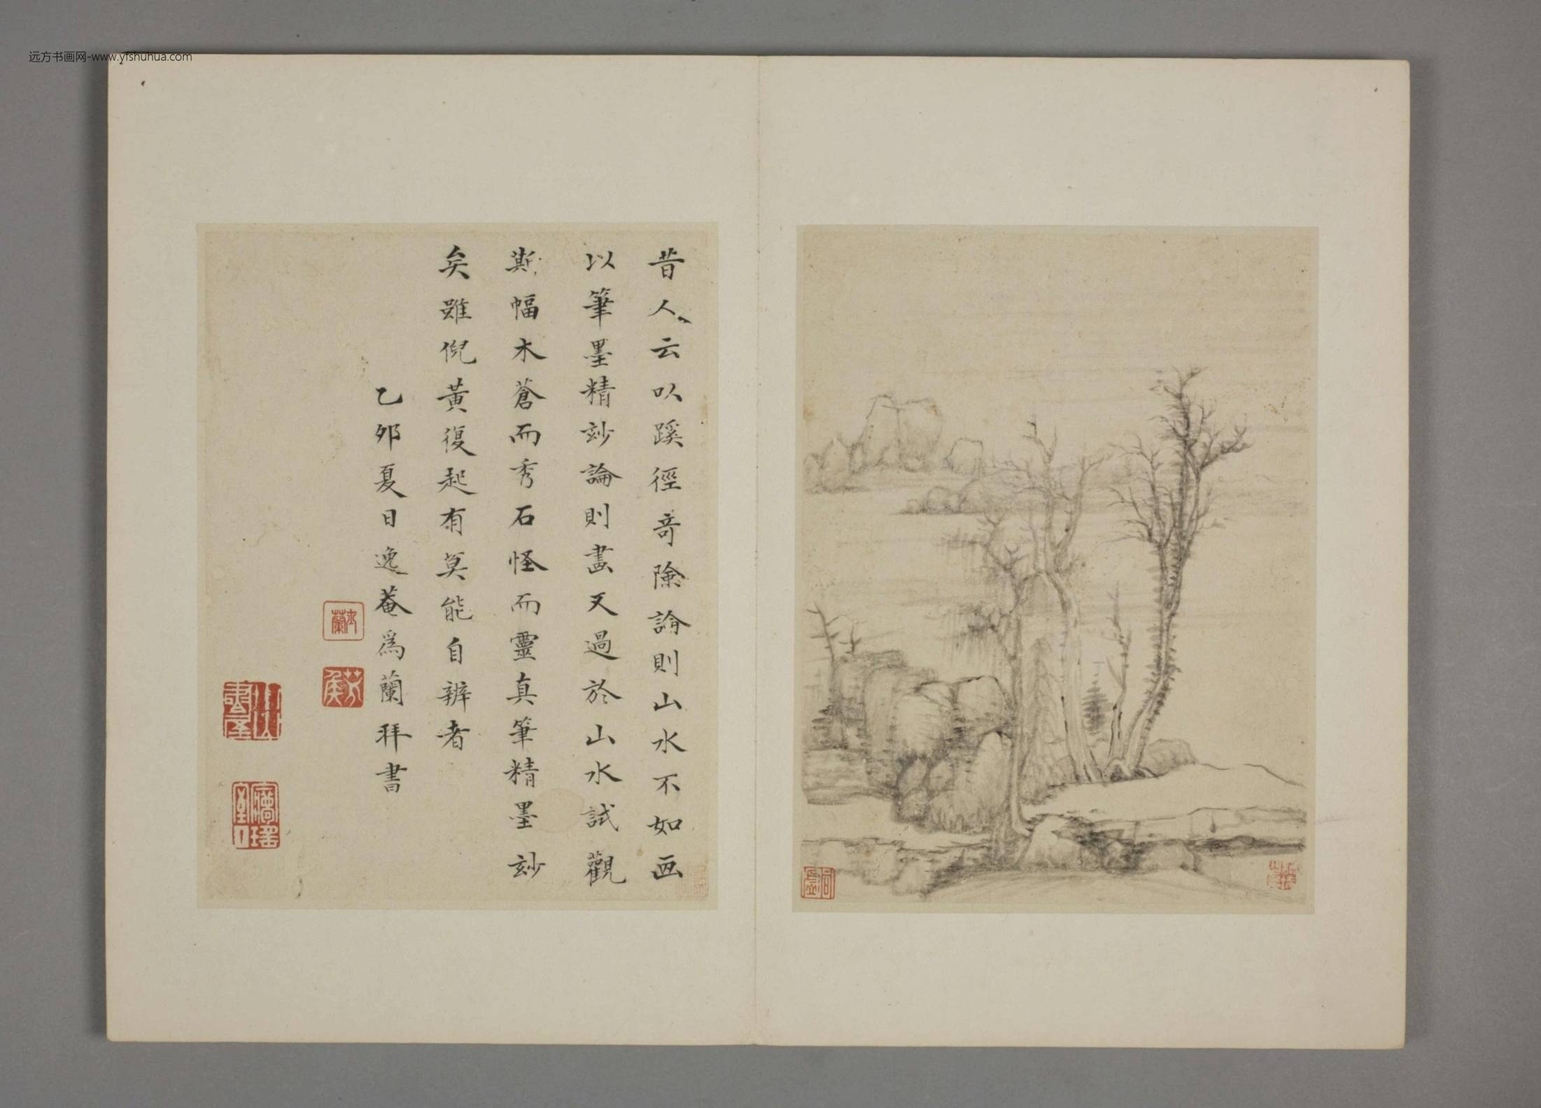 远方书画网-www.yfshuhua.com
昔人云以蹊徑奇險論則山水不如画
以筆墨精妙論則畫又過於山水試觀
斯幅木蒼而秀石怪而靈真筆精墨妙
矣雖倪黃復起有莫能自辨者
乙夘夏日逸菴為蘭拜書